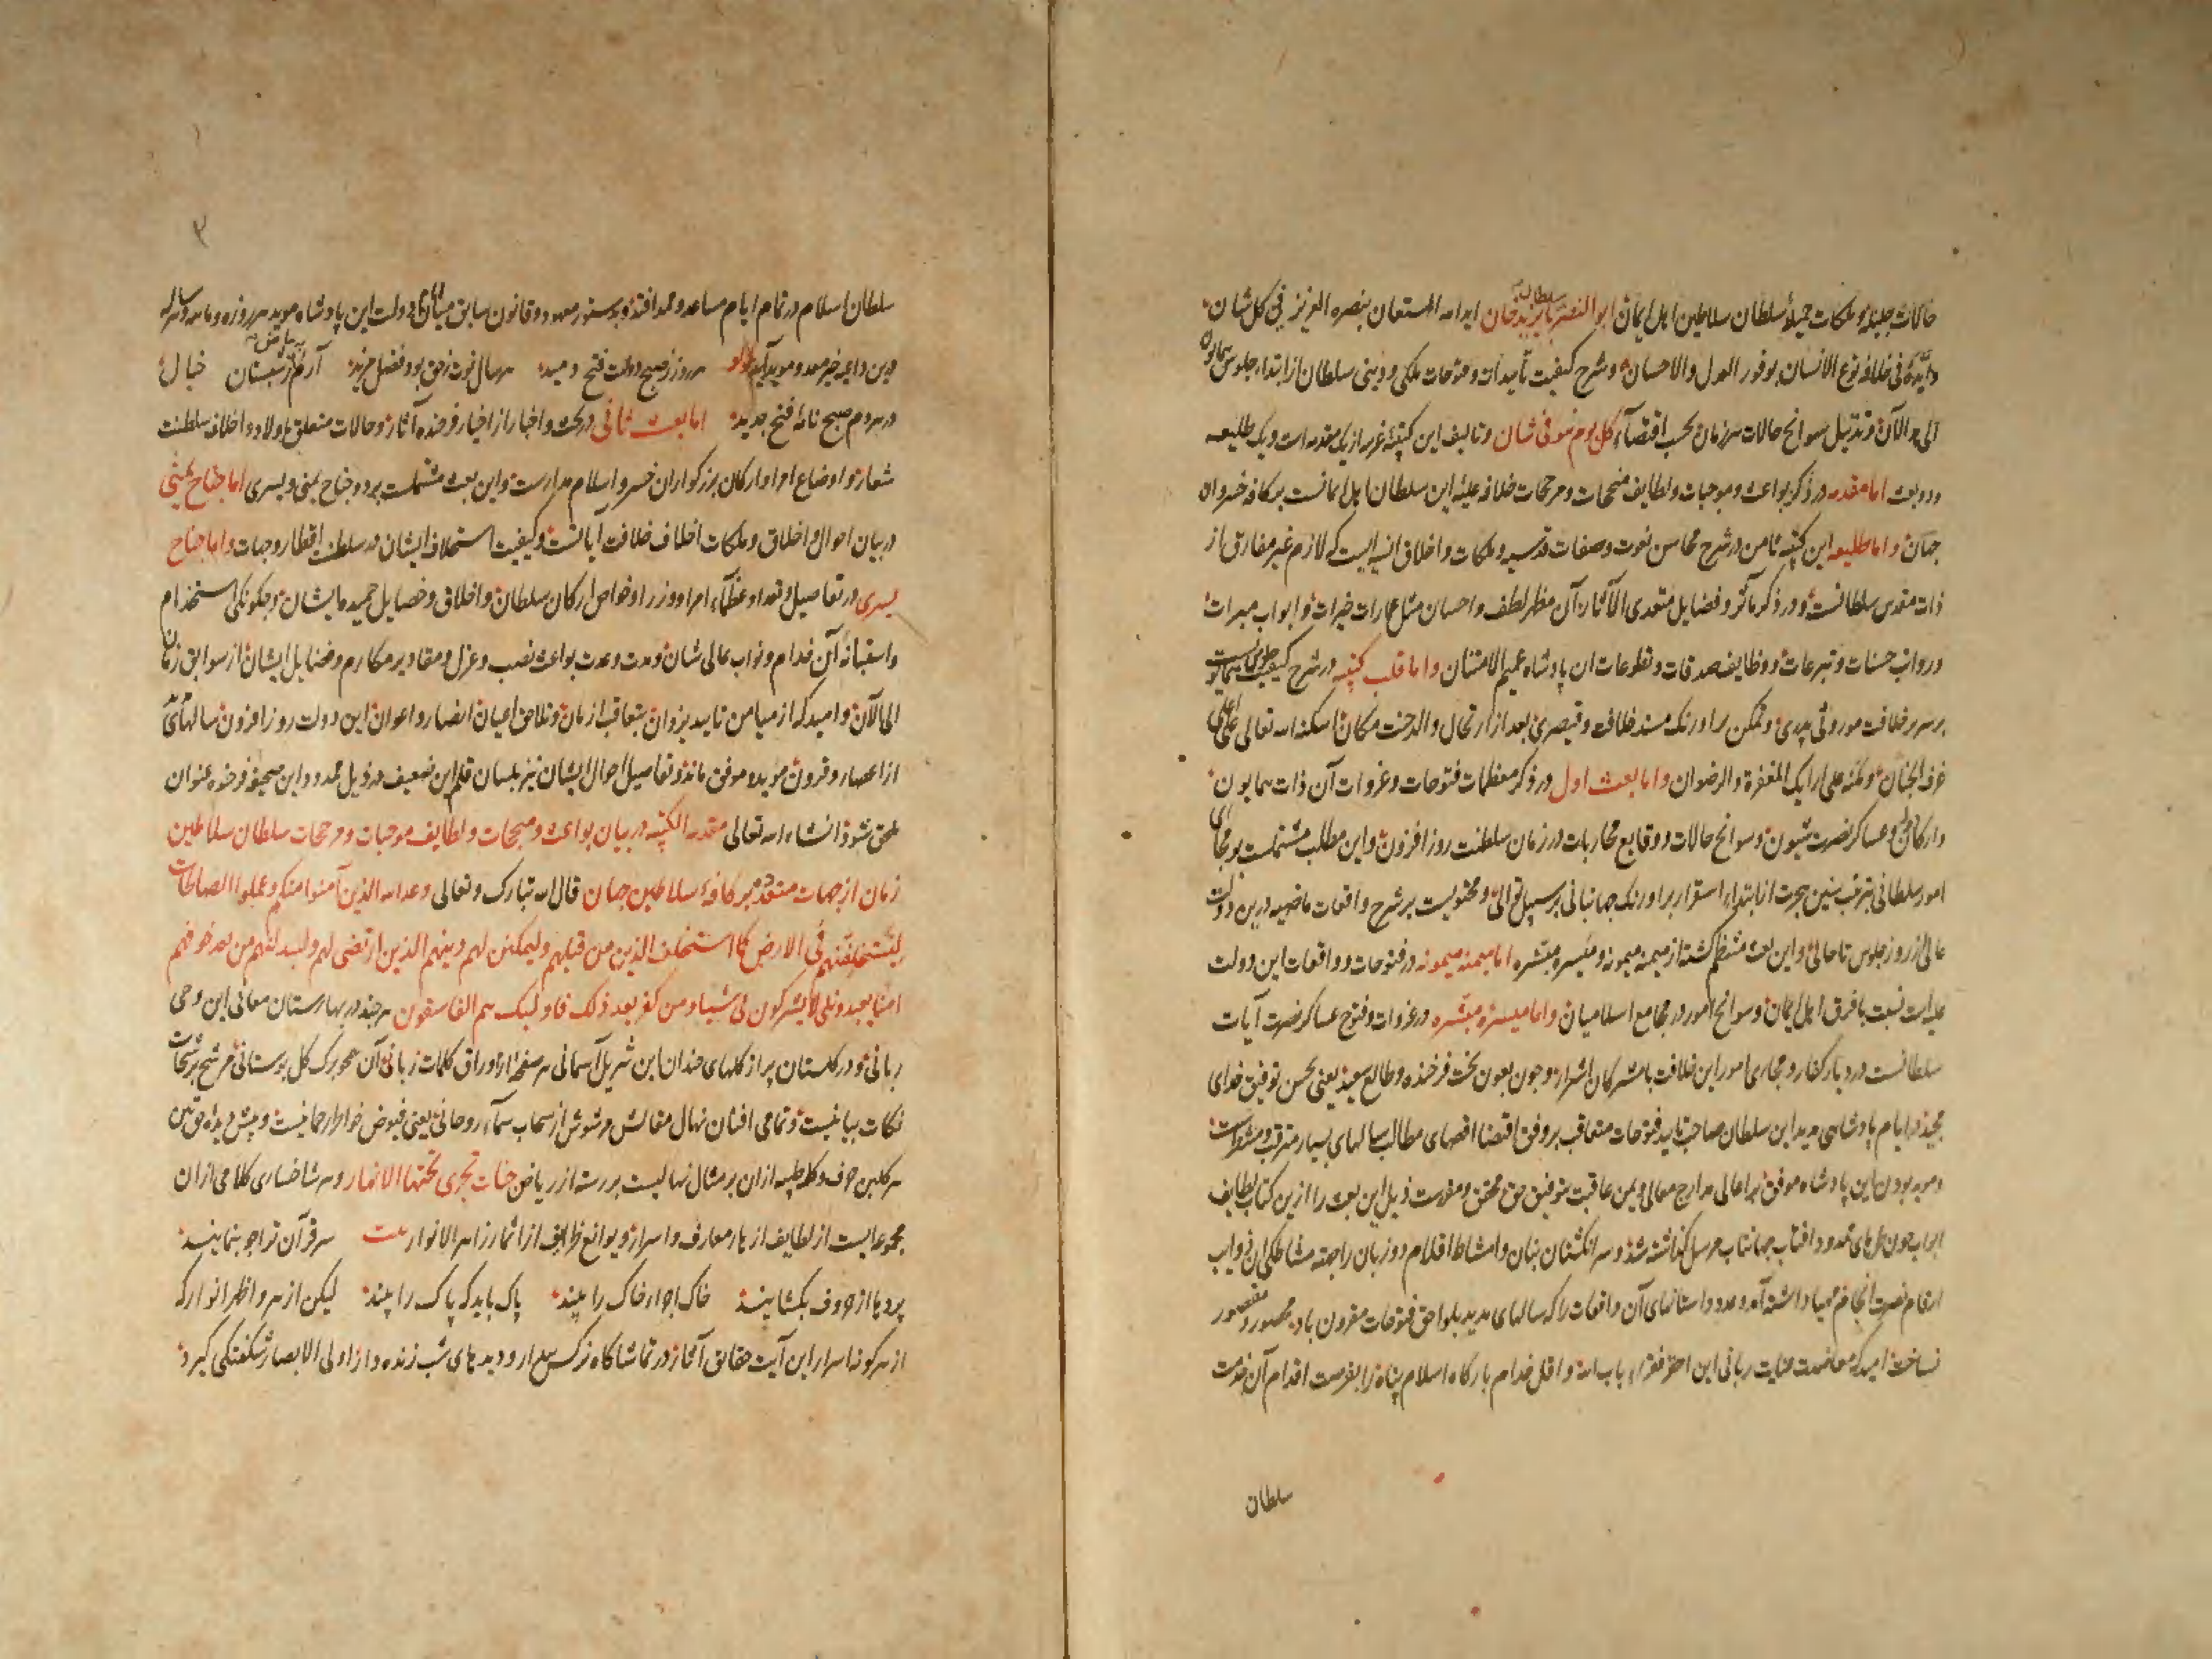 حالات جلیله و ملکات جمیلهٔ سلطان سلاطین اهل ایمان ابو النصر سلطان بایزید خان ایده الله المستعان بنصره العزیز فی کل شان
وایده فی خلافة نوع الانسان بوفور العدل والاحسان و شرح کیفیت تأییدات و فتوحات ملکی و دینی سلطان از ابتداء جلوس همایون
الی الآن و تذییل سوانح حالات هر زمان بحسب اقتضاء کل یوم هو فی شان و تالیف این کتیبهٔ غرا از یک مقدمه است و یک طلیعه
و دو بعث اما مقدمه در ذکر بواعث و موجبات و لطایف منجحات و مرجحات خلافة علیهٔ این سلطان اهل ایمانست بر کافه خسروان
جهان و اما طلیعه این کتیبه ثامن در شرح محاسن نعوت و صفات قدسیه و ملکات و اخلاق انسیه ایست که لازم غیر مفارق از
ذات مقدس سلطانست و در ذکر مآثر و فضایل متعدی الآثار آن مظهر لطف و احسان مثل عمارات خیرات و ابواب مبرات
و رواتب حسنات و تبرعات و وظایف صدقات و تطوعات ان پادشاه عمیم الامتنان و اما قلب کتیبه در شرح کیفیت جلوس همایونست
بر سریر خلافت موروثی پدری و تمکن بر اورنک مسند خلافت و قیصری بعد از ارتحال والد جنت مکان اسکنه الله تعالی علی اعلی
غرف الجنان و مکنه علی ارایک المغفرة والرضوان و اما بعث اول در ذکر معظمات فتوحات و غزوات آن ذات همایون
و ارکان و عساکر نصرت شیون و سوانح حالات و وقایع محاربات در زمان سلطنت روز افزون و این مطلب مشتملست بر مجاری
امور سلطانی بترتیب سنین هجرت از ابتداء استقرار بر اورنک جهانبانی بر سبیل توالی و محتویست بر شرح واقعات ماضیه درین دولت
عالی از روز جلوس تا حالی و این بعث منتظم کشته از میمنه میمونه و میسره مبتشره اما میمنه میمونه در فتوحات و واقعات این دولت
علیه است نسبت با فرق اهل ایمان و سوانح امور در مجامع اسلامیان و اما میسره مبشره در غزوات و فتوح عساکر نصرت آیات
سلطانست در دیار کفار و مجاری امور این خلافت با مشرکان اشرار و چون بعون بخت فرخنده و طالع سعید یعنی بحسن توفیق خدای
مجید در ایام پادشاهی مدید این سلطان صاحب تایید فتوحات متعاقب بر وفق اقتضا اقصای مطالب سالهای بسیار مترقب و متوقعست
و موید بودن این پادشاه موفق بر اعالی مدارج معالی و یمن عاقبت بتوفیق حق محقق و مقررست ذیل این بعث را ازین کتاب لطایف
ابواب چون ظل‌های ممدود افتاب جهانتاب مرسل کذاشته شد و سر انکشتان بنان و امشاط اقلام دو زبان را جهة مشاطکی ان ذوایب
ارقام نصرت انجام مهیا داشته آمد و عدد داستانهای آن واقعات را که سالهای مدید بلواحق فتوحات مقرون باد محصور و مقصور
نساخت امید که معاضدت عنایت ربانی این احقر فقراء باب الله و اقل خدام بارکاه اسلام پناه را بفرصت اقدام آن خدمت
سلطان
۳
سلطان اسلام در تمام ایام مساعد و ممد افتد و بدستور معهود و قانون سابق مبانی دولت این پادشاه موید هر روزه و ماهه و هر ساله
درین داعیه خیر ممد و موید آید هر روز ز صبح دولت فتح دمید هر سال نوت ز حق بود فضل مزید آرم ز شبستان خیال
در هر دم صبح نامهٔ فتح جدید اما بعث ثانی در بحث و اخبار از اخبار فرخنده آثار و حالات متعلق باولاد و اخلاف سلطنت
شعار و اوضاع امرا و ارکان بزرکواران خسرو اسلام مدارست و این بعث مشتملست بر دو جناح یمنی و یسری اما جناح یمنی
در بیان احوال و اخلاق و ملکات اخلاف خلافت آیاتست و کیفیت استخلاف ایشان در سلطنت اقطار و جهات و اما جناح
یسری در تفاصیل و تعداد عظماء امرا و وزرا و خواص ارکان سلطان و اخلاق و خصایل حمیده ایشان و چکونکی استخدام
و استنابهٔ آن خدام و نواب عالی شان و مدت و عدت بواعث نصب و عزل و مقادیر مکارم و فضایل ایشان از سوابق زمان
الی الآن و امید که از میامن تایید یزدان بتعاقب ازمان و تلاحق اعیان انصار و اعوان این دولت روز افزون سالهای
از اعصار و قرون موید و موفق ماند و تفاصیل احوال ایشان نیز بلسان قلم این ضعیف در ذیل ممدود این صحیفه فرخنده عنوان
ملحق شود انشاء الله تعالی مقدمه الکتیبه در بیان بواعث و منجحات و لطایف موجبات و مرجحات سلطان سلاطین
زمان از جهات متعدد بر کافهٔ سلاطین جهان قال الله تبارک و تعالی وعد الله الذین آمنوا منکم و عملوا الصالحات
لیستخلفنهم فی الارض کما استخلف الذین من قبلهم ولیمکنن لهم دینهم الذی ارتضی لهم ولیبدلنهم من بعد خوفهم
امنا یعبدوننی لا یشرکون بی شیئا ومن کفر بعد ذلک فاولئک هم الفاسقون هر چند در بهارستان معانی این وحی
ربانی و در کلستان پر از کلهای خندان این تنزیل آسمانی هر صفحه از اوراق کلمات ربانی آن همچو برک کل بوستانی مرشح برشحات
نکات بیانیست و تمامی افنان نهال مقالش مرشوش از سحاب سماء روحانی یعنی فیوض خواطر رحمانیست و پیش دیده حق بین
هر کلبن حرف و کلمه طیبه ازان بر مثال نهالیست بر رسته از ریاض جنات تجری تحتها الانهار و هر شاخساری کلامی ازان
مجموعه ایست از لطایف ازهار معارف و اسرار و یوانع ظرایف از اثمار زاهر الانوار بیت هر قرآن ترا چو بنمایند
پرده‌ها از حروف بکشایند خاک اجزاء خاک را بیند پاک باید که پاک را بیند لیکن از هر و اظهر انوار که
از هر کونه اسرار این آیت حقایق آثار در تماشاکاه نرکس بیدار و دیده‌های شب زنده دار اولی الابصار شکفتکی کیرد